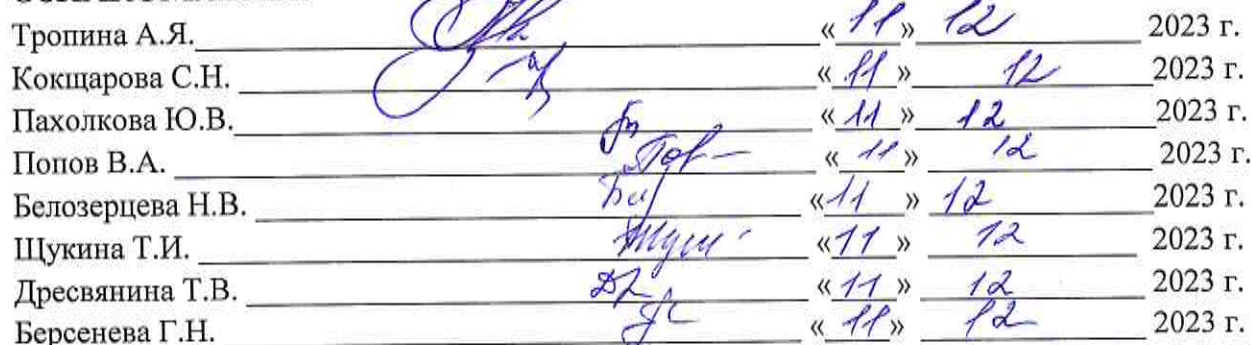 Тропина А.Я. « 11 » 12 2023 г.
Кокщарова С.Н. « 11 » 12 2023 г.
Пахолкова Ю.В. « 11 » 12 2023 г.
Попов В.А. « 11 » 12 2023 г.
Белозерцева Н.В. « 11 » 12 2023 г.
Щукина Т.И. « 11 » 12 2023 г.
Дресвянина Т.В. « 11 » 12 2023 г.
Берсенева Г.Н. « 11 » 12 2023 г.